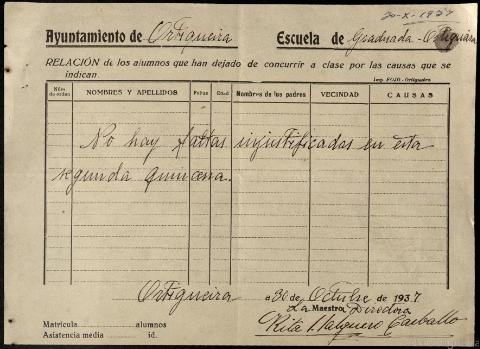 30-X-1937
Ayuntamiento de Ortigueira Escuela de Graduada - Ortigueira
RELACIÓN de los alumnos que han dejado de concurrir a clase por las causas que se
indican.
Imp. FOJO.-Ortigueira
Núm. de orden NOMBRES Y APELLIDOS Faltas Edad Nombres de los padres VECINDAD CAUSAS
No hay faltas injustificadas en esta
segunda quincena.
Ortigueira a 30 de Octubre de 1937
La Maestra Directora
Matrícula alumnos
Rita Carballo
Asistencia media id.